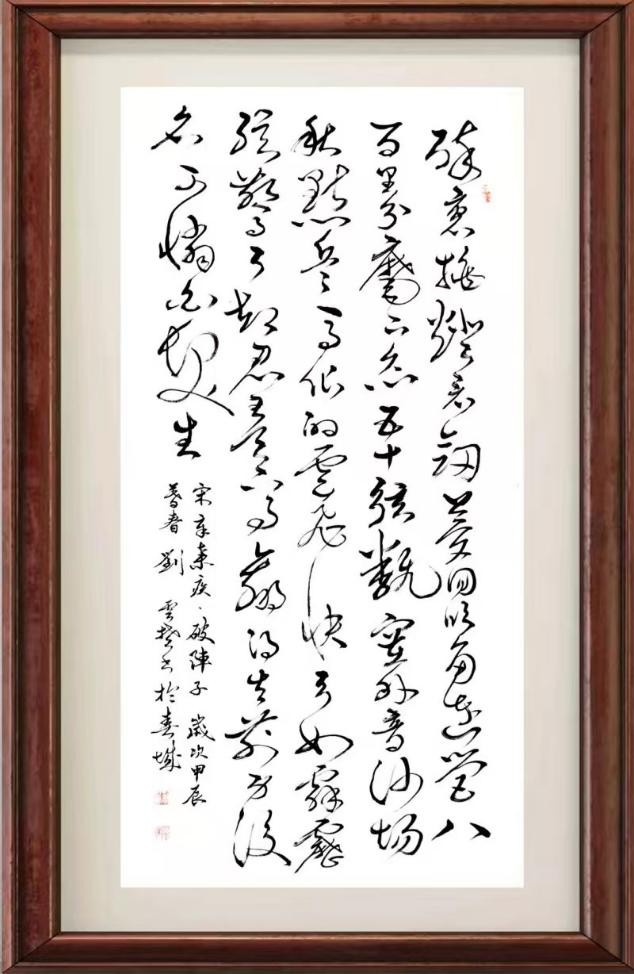 醉裏挑燈看劍夢回吹角連營八
百里分麾下炙五十弦翻塞外聲沙場
秋點兵馬作的盧飛快弓如霹靂
弦驚了却君王天下事贏得生前身後
名可憐白髮生
宋辛棄疾、破陣子 歲次甲辰
暮春 劉雲書於春城